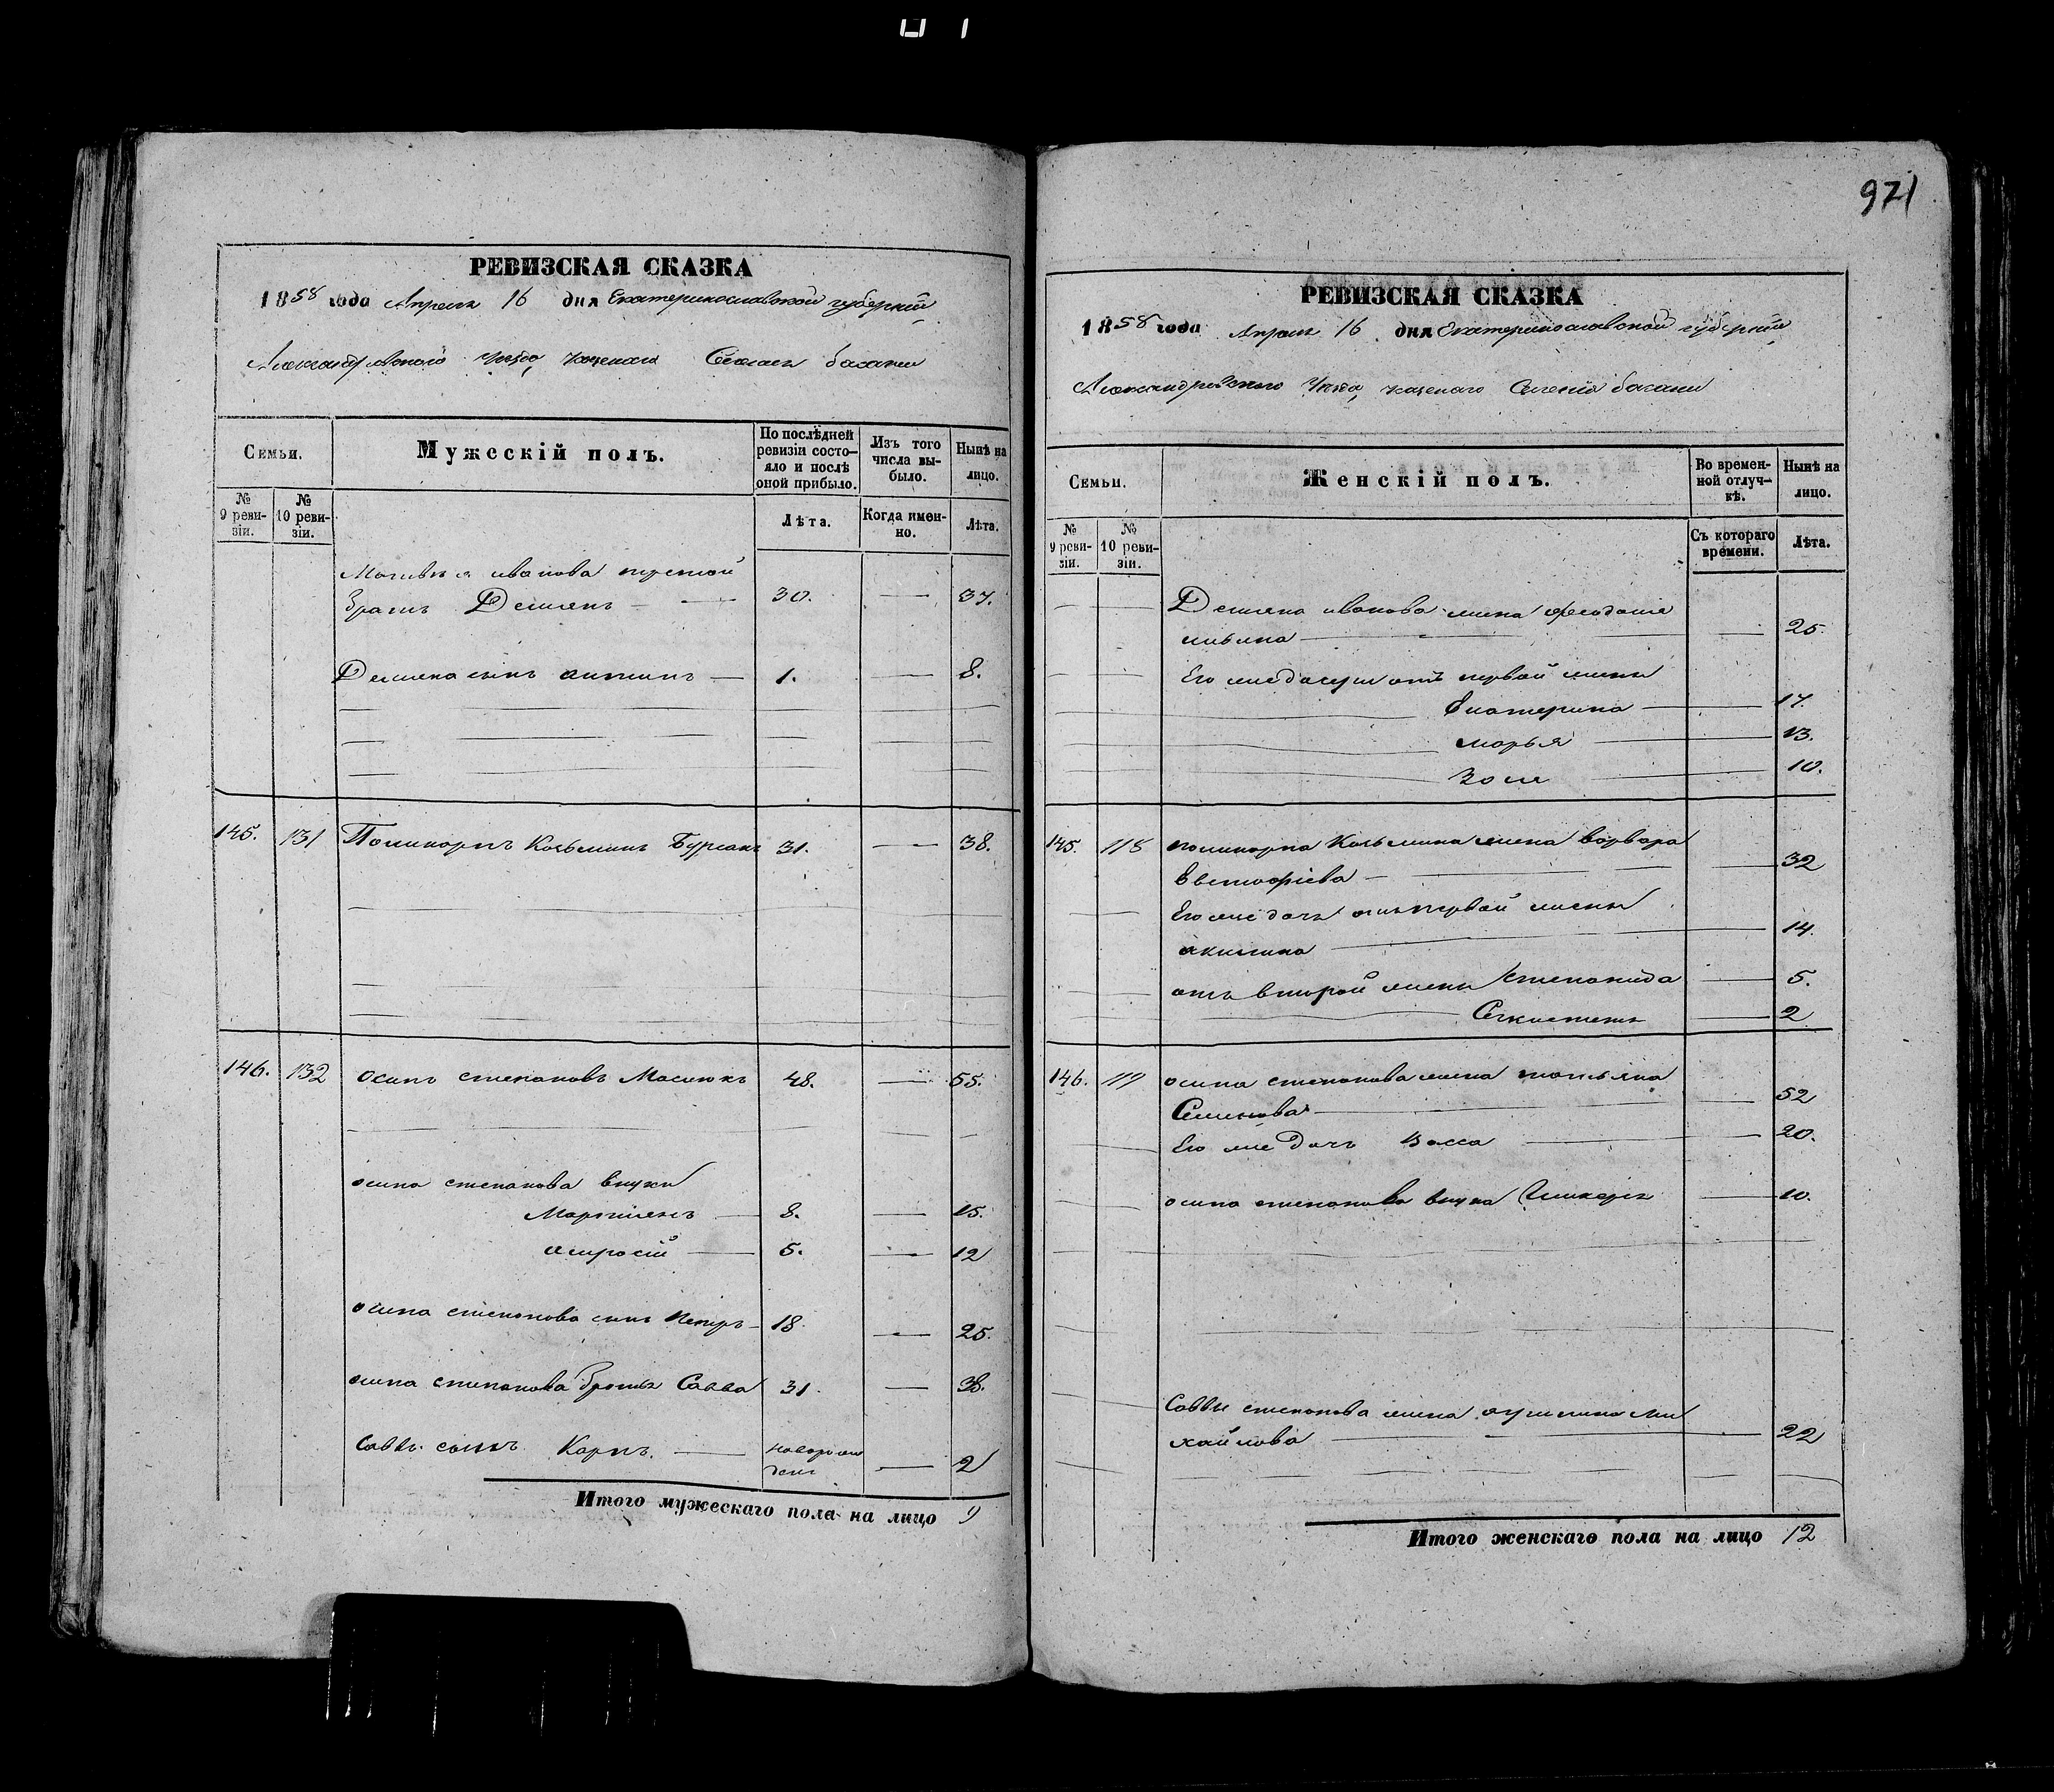 971
РЕВИЗСКАЯ СКАЗКА
1858 года Апреля 16 дня Екатеринославской губернiи
Александровского уезда, казенного Селения басани
Семьи.
Мужескiй полъ.
По послѣдней ревизiи состо-
яло и послѣ
оной прибыло.
Изъ того
числа вы-
было.
Нынѣ на
лицо.
№
9 реви-
зiи.
№
10 реви-
зiи.
Лѣта.
Когда имен-
но.
Лѣта.
иванова
братъ Демьянъ 30. 37.
Демьяна сынъ антипъ 1. 8.
145. 131 Поликарпъ Козьминъ 31. 38.
146. 132 осипъ степановъ Маслюкъ 48. 55.
осипа степанова внуки
Мартинъ 8. 15.
амросiй 5. 12
осипа степанова сынъ Петръ 18. 25.
осипа степанова братъ Савва 31. 38.
Саввы сынъ Карпъ. новорож
денъ 2
Итого мужескаго пола на лицо 9
РЕВИЗСКАЯ СКАЗКА
1858 года Апреля 16 дня Екатеринославской губернiи
Александровского уезда, казенного Селенiя басани
Семьи.
Женскiй полъ.
Во времен-
ной отлуч-
кѣ.
Нынѣ на
лицо.
№
9 реви-
зiи.
№
10 реви-
зiи.
Съ котораго
времени.
Лѣта.
Демьяна иванова жена феодосiя
25.
Его же дочери отъ первой жены
Екатерина 17.
марья 13.
10.
145. 118 поликарпа Козьмина жена варвара
Евстафiева 32
Его же дочь отъ первой жены
акилина 14.
отъ второй жены степанида 5.
2
146. 119 осипа степанова жена татьяна
Семенова 52
Его же дочь Васса 20.
осипа степанова внука 10.
Саввы степанова жена Ми
хайлова 22
Итого женскаго пола на лицо 12